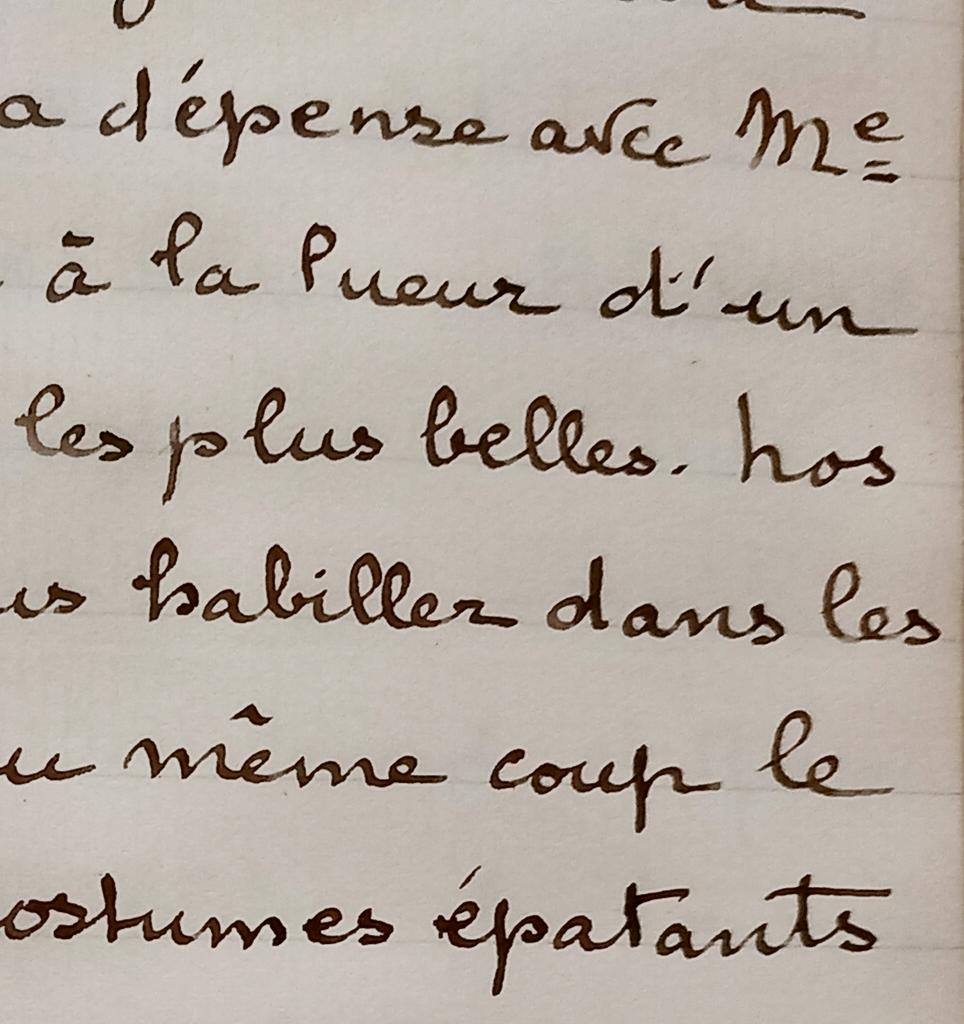 a dépense avec Me
à la lueur d'un
les plus belles. nos
us habiller dans les
u même coup le
ostumes épatants